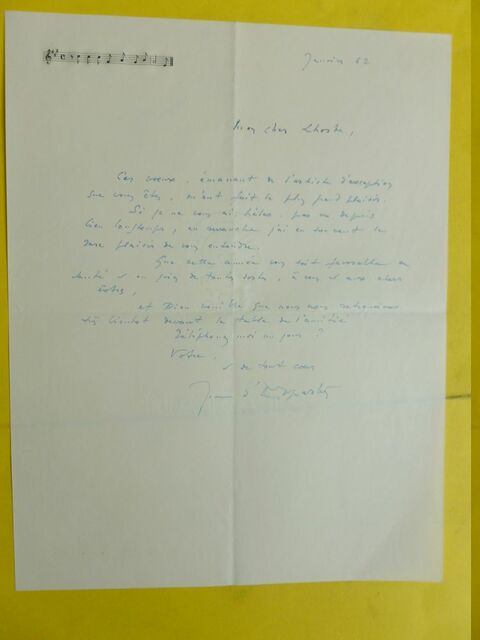 Janvier 62
Mon cher Lhoste,
Ces voeux, émanant de l'artiste d'exception
que vous êtes, m'ont fait le plus grand plaisir.
Si je ne vous ai, hélas, pas vu depuis
bien longtemps, en revanche j'ai eu souvent le
rare plaisir de vous entendre.
Que cette année vous soit favorable en
santé et en joies de toutes sortes, à vous et aux chers
vôtres,
et Dieu veuille que nous nous retrouvions
très bientôt devant la table de l'amitié
Téléphonez moi un jour ?
Votre,
de tout coeur
Jean